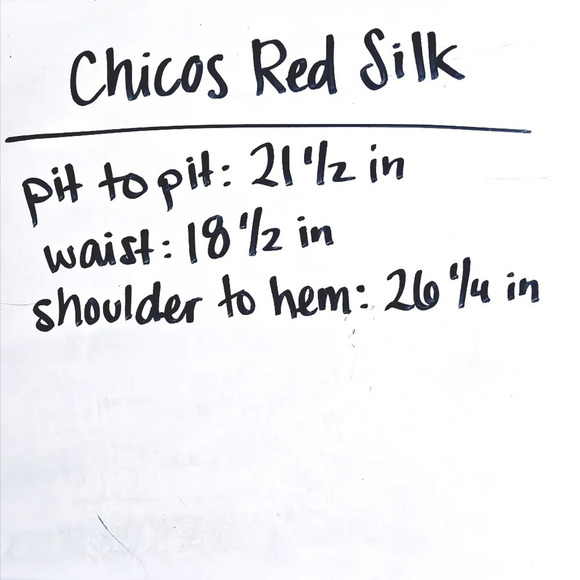 Chicos Red Silk
pit to pit: 21 1/2 in
waist: 18 1/2 in
shoulder to hem: 26 1/4 in